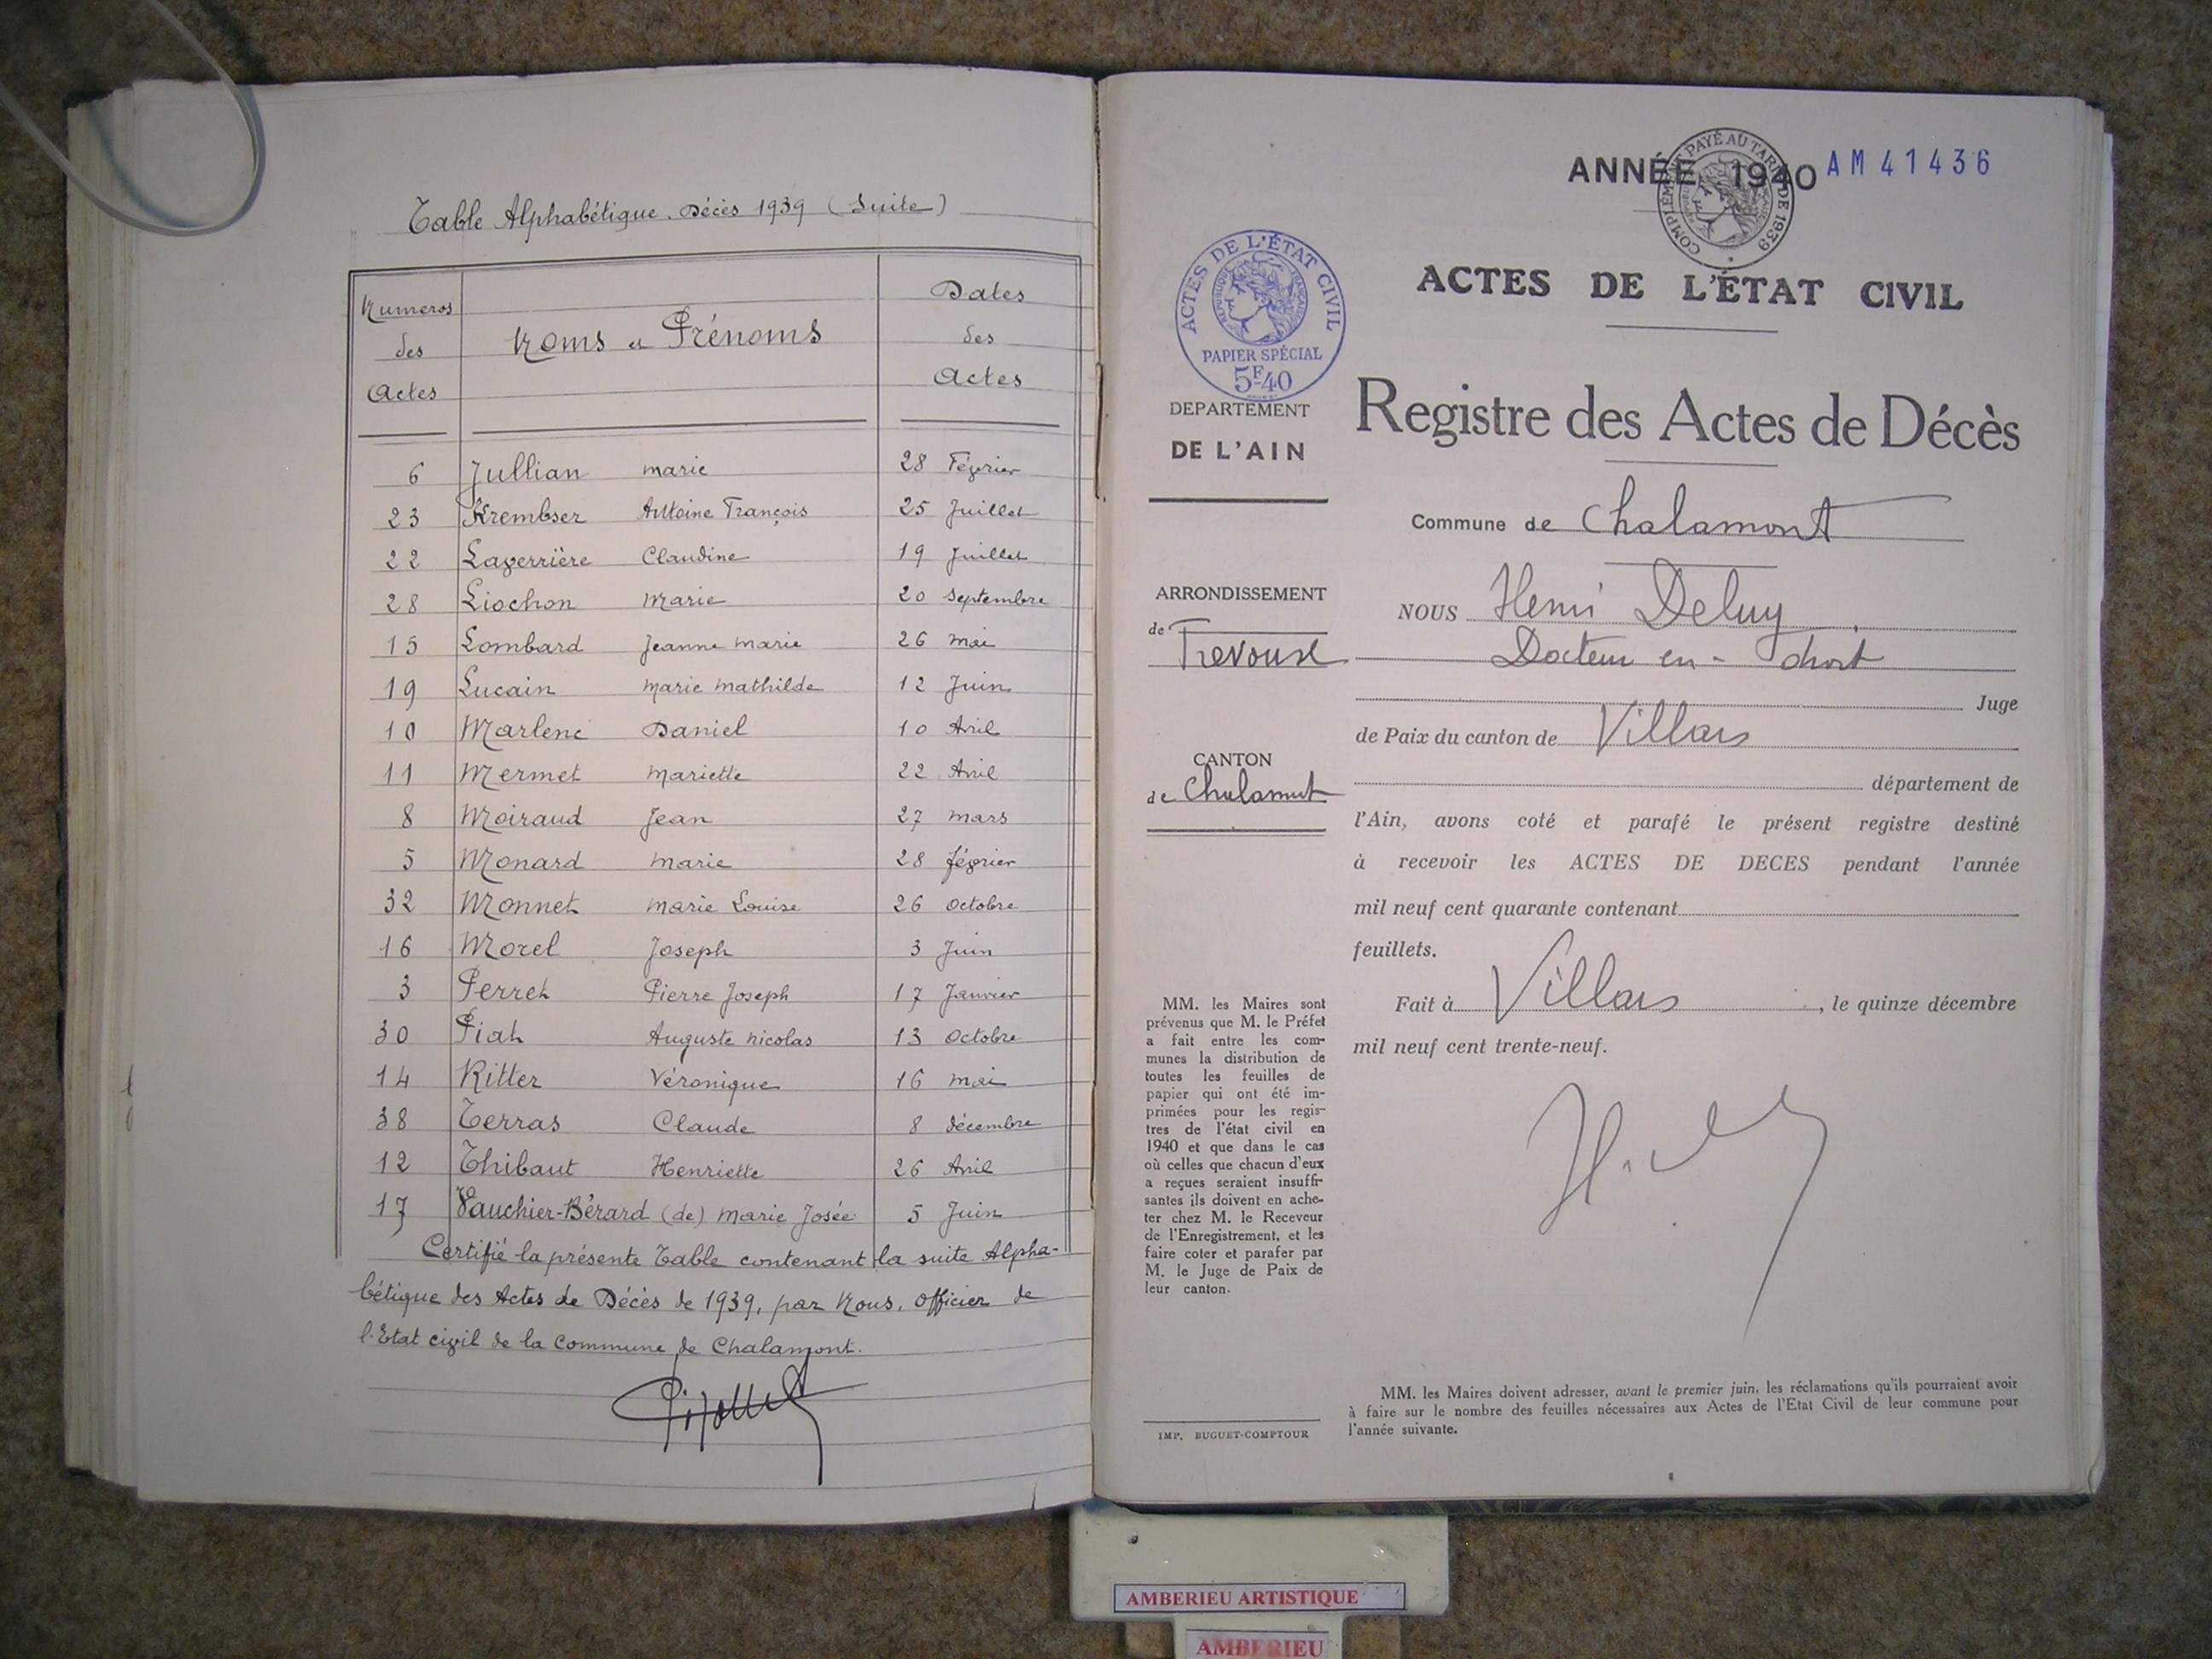 Table Alphabétique. Décès 1939 (Suite)
Numeros des Actes
Noms et Prénoms
Dates des Actes
6 Jullian marie 28 Février
23 Krembser Antoine François 25 Juillet
22 Laverrière Claudine 19 Juillet
28 Liochon Marie 20 septembre
15 Lombard Jeanne marie 26 mai
19 Lucain Marie mathilde 12 Juin
10 Marlene Daniel 10 Avril
11 Mermet Mariette 22 Avril
8 Moiraud Jean 27 mars
5 Monard marie 28 février
32 Monnet marie Louise 26 octobre
16 Morel Joseph 3 Juin
3 Perret Pierre Joseph 17 Janvier
30 Piat Auguste nicolas 13 Octobre
14 Ritter Véronique 16 mai
38 Terras Claude 8 décembre
12 Thibaut Henriette 26 Avril
17 Vauchier-Bérard (de) Marie Josée 5 Juin
Certifié la présente Table contenant la suite Alpha-
bétique des Actes de Décès de 1939, par Nous, officier de
l'Etat civil de la Commune de Chalamont.
ANNÉE 1940 AM 41436
COMPLÉMENT PAYÉ AU TARIF DE 1939
ACTES DE L'ÉTAT CIVIL
ACTES DE L'ÉTAT CIVIL
REPUBLIQUE FRANÇAISE
PAPIER SPÉCIAL
5F40
DEPARTEMENT
DE L'AIN
Registre des Actes de Décès
Commune de Chalamont
ARRONDISSEMENT
de Trevoux
NOUS Henri Deluy
Docteur en-droit
Juge
de Paix du canton de Villars
CANTON
de Chalamont
département de
l'Ain, avons coté et parafé le présent registre destiné
à recevoir les ACTES DE DECES pendant l'année
mil neuf cent quarante contenant
feuillets.
Fait à Villars, le quinze décembre
mil neuf cent trente-neuf.
MM. les Maires sont
prévenus que M. le Préfet
a fait entre les com-
munes la distribution de
toutes les feuilles de
papier qui ont été im-
primées pour les regis-
tres de l'état civil en
1940 et que dans le cas
où celles que chacun d'eux
a reçues seraient insuffi-
santes ils doivent en ache-
ter chez M. le Receveur
de l'Enregistrement, et les
faire coter et parafer par
M. le Juge de Paix de
leur canton.
MM. les Maires doivent adresser, avant le premier juin, les réclamations qu'ils pourraient avoir
à faire sur le nombre des feuilles nécessaires aux Actes de l'Etat Civil de leur commune pour
l'année suivante.
IMP. BUGUET-COMPTOUR
AMBERIEU ARTISTIQUE
AMBERIEU